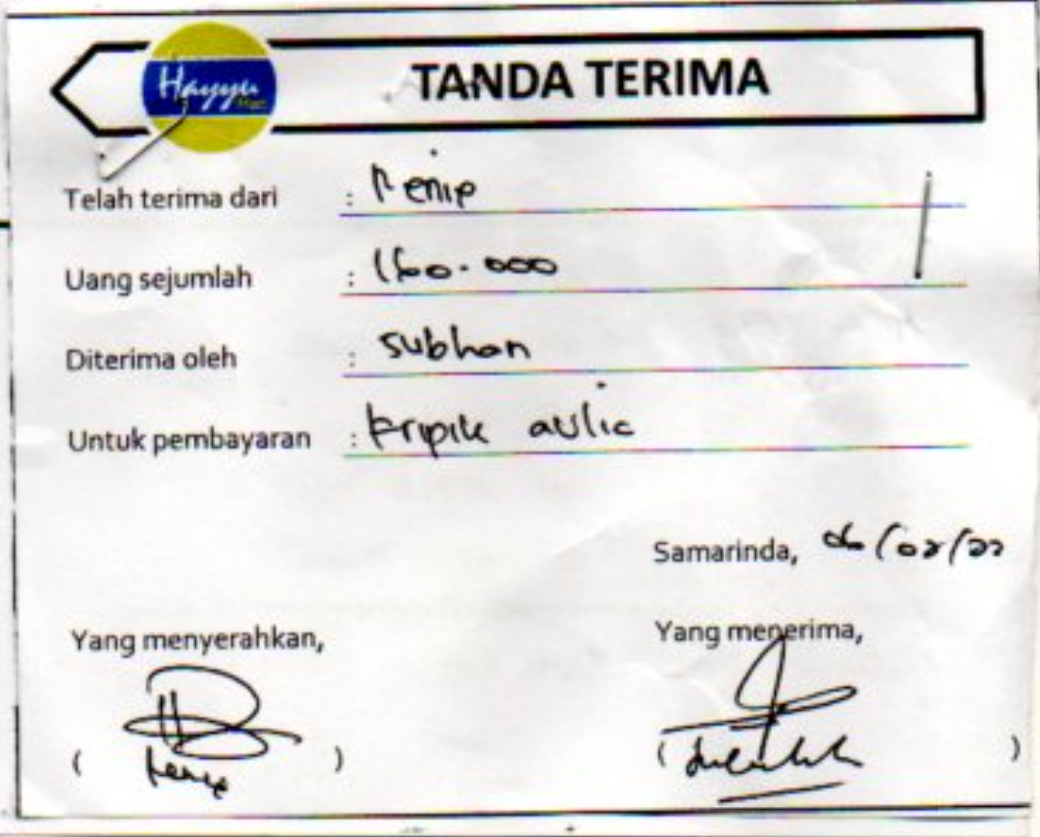 Hayyu
Mart
TANDA TERIMA
Telah terima dari :
Uang sejumlah :
Diterima oleh : Subhan
Untuk pembayaran : kripik aulia
Samarinda,
Yang menyerahkan,
Yang menerima,
( )
( )